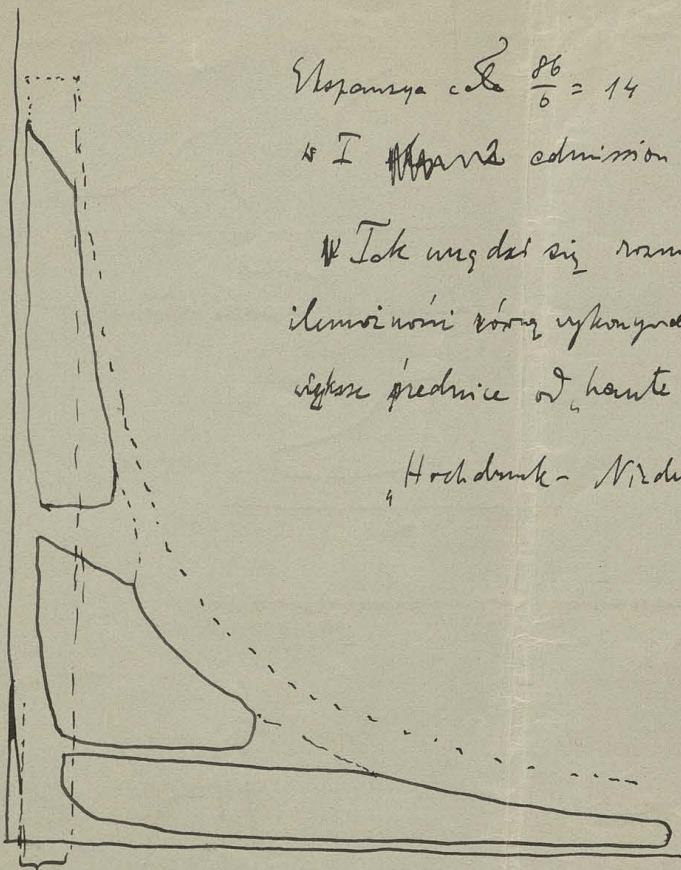 Ekspansya cała 86/6 = 14
w I admission
Tak urządzi się rozm
ilemożności równą wykonywa
większe średnice od „haute
„Hochdruck - Niede